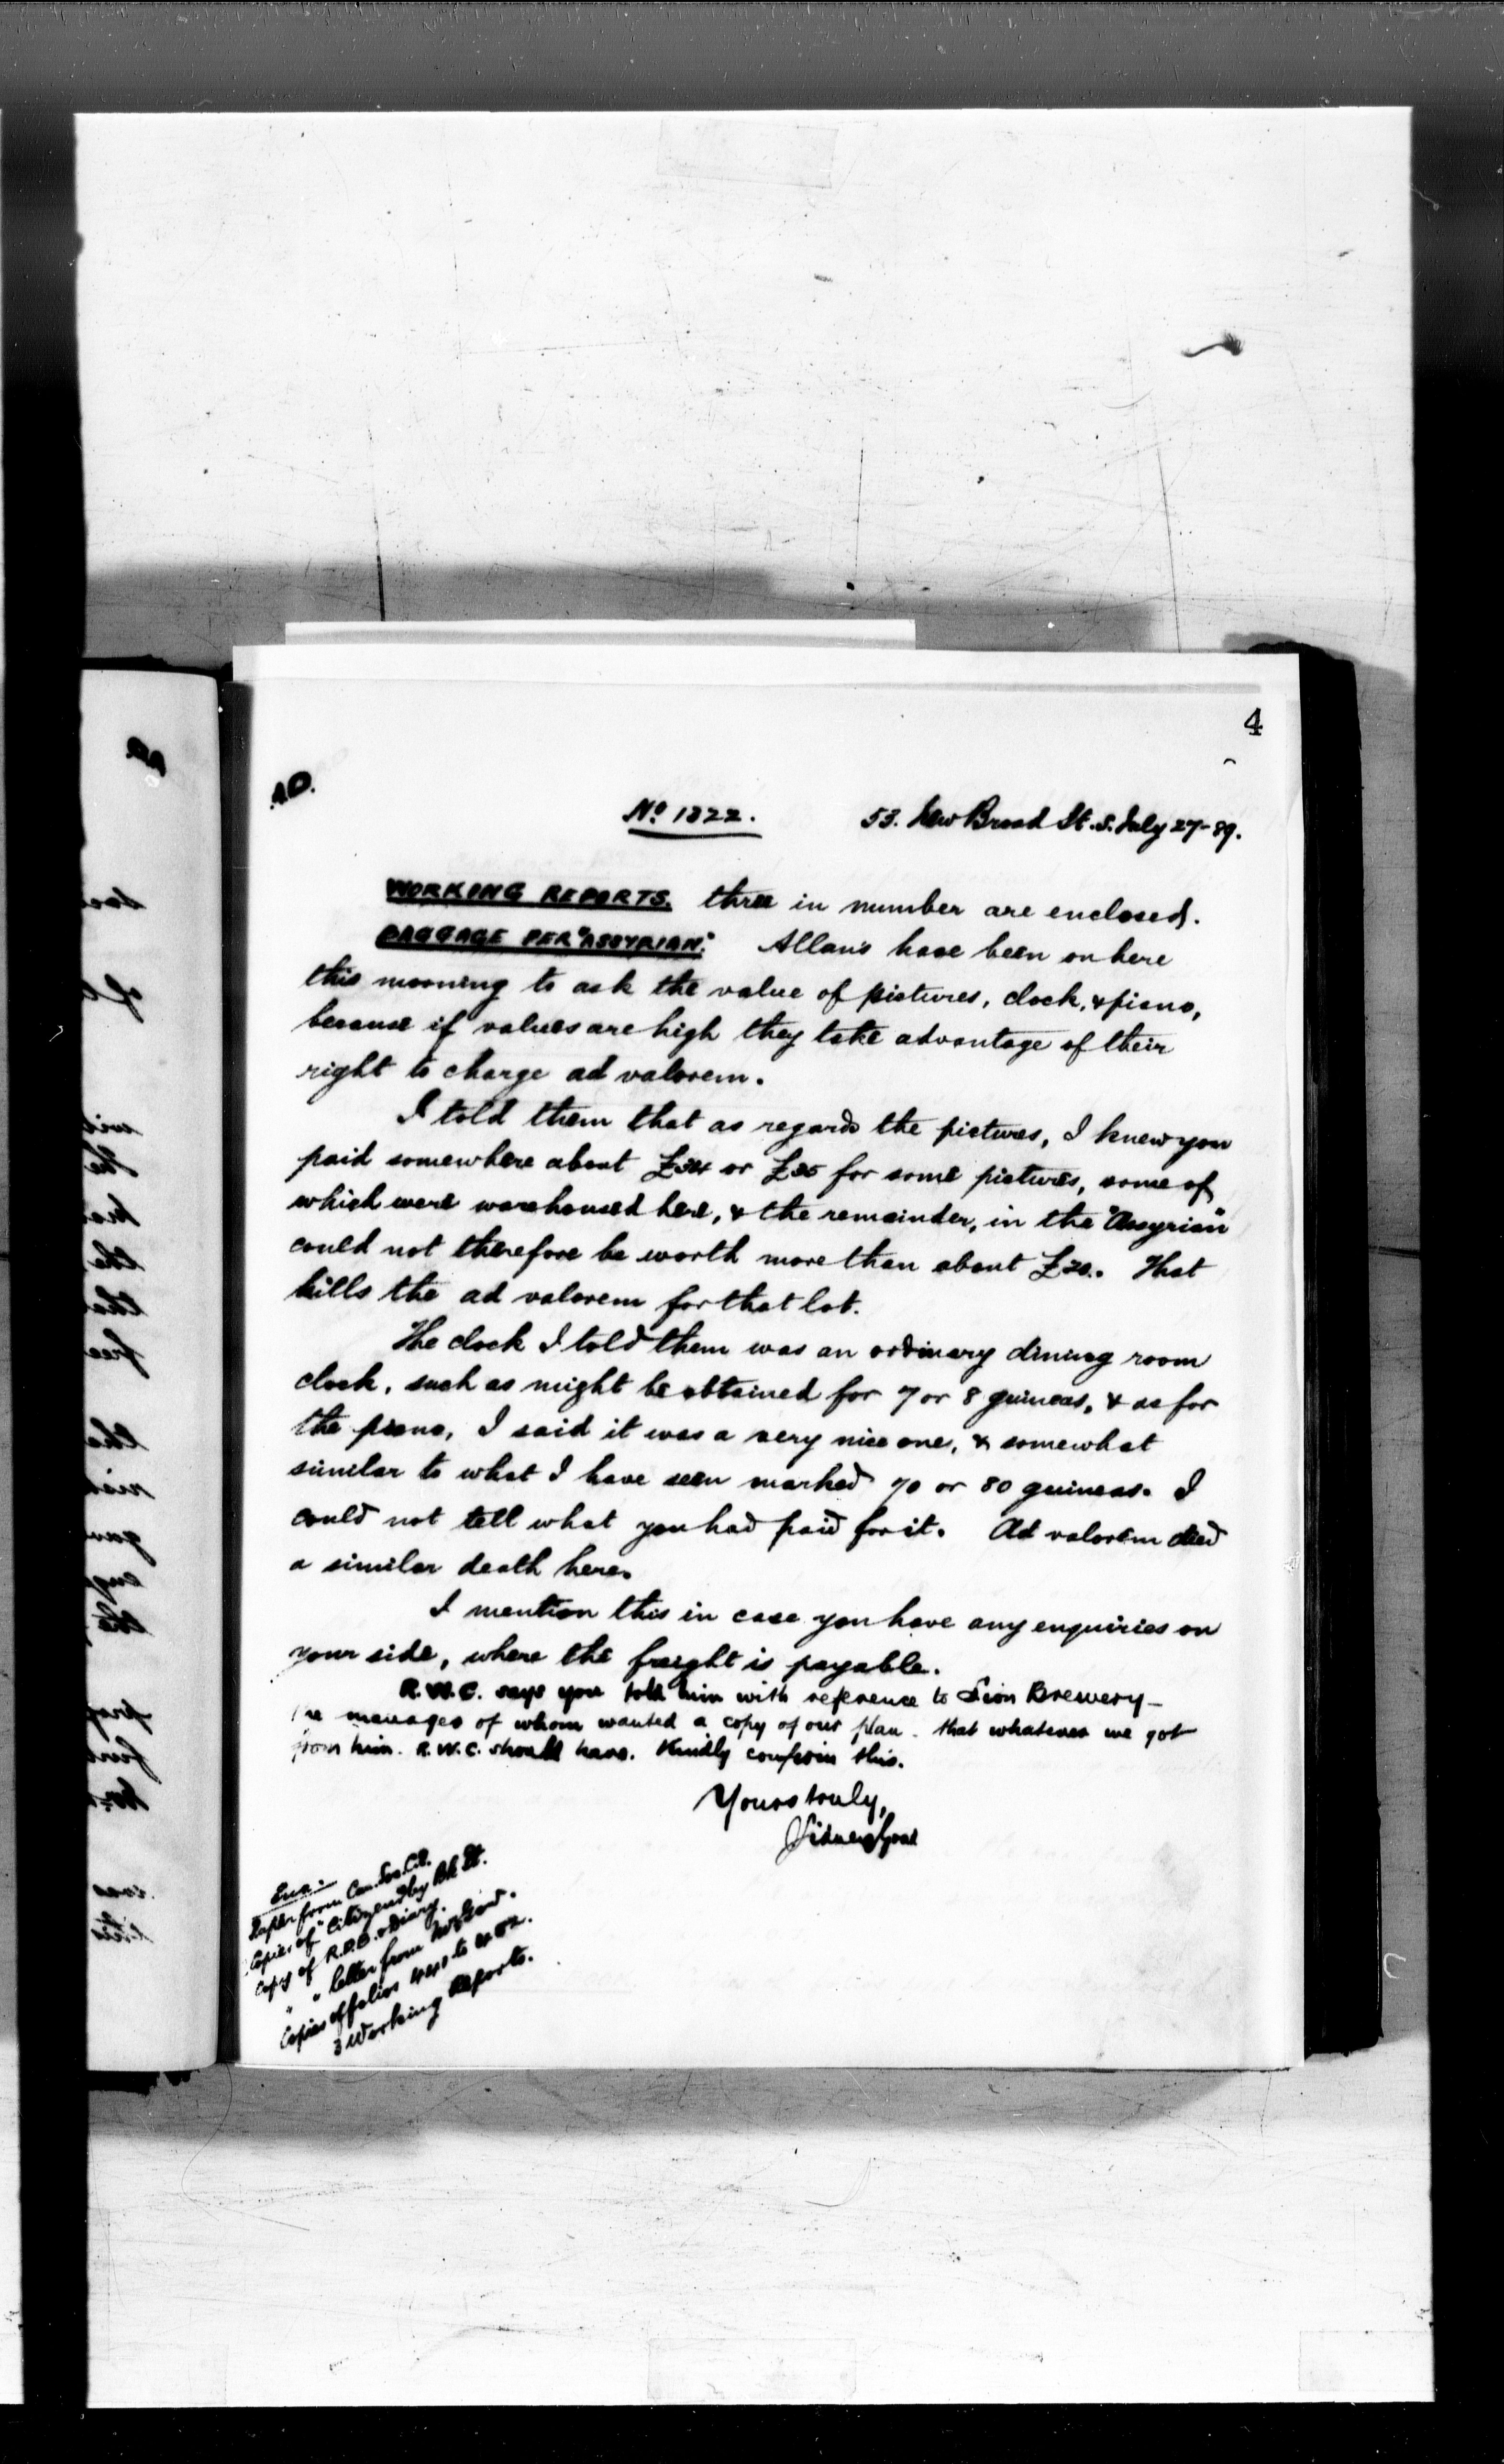 4
A.D.
No. 1322. 53. New Broad St. S. July 27-89.
WORKING REPORTS. three in number are enclosed.
BAGGAGE PER "ASSYRIAN." Allans have been on here
this morning to ask the value of pictures, clock, & piano,
because if values are high they take advantage of their
right to charge ad valorem.
I told them that as regards the pictures, I knew you
paid somewhere about £34 or £35 for some pictures, some of
which were warehoused here, & the remainder, in the "Assyrian"
could not therefore be worth more than about £20. That
kills the ad valorem for that lot.
The clock I told them was an ordinary dining room
clock, such as might be obtained for 7 or 8 guineas, & as for
the piano, I said it was a very nice one, & somewhat
similar to what I have seen marked 70 or 80 guineas. I
could not tell what you had paid for it. Ad valorem died
a similar death here.
I mention this in case you have any enquiries on
your side, where the freight is payable.
R.W.C. says you told him with reference to Lion Brewery-
the manager of whom wanted a copy of our plan. that whatever we got
from him. R.W.C. should have. Kindly confirm this.
Yours truly,
Sidney
Enc:-
Paper from Can. Soc. C.E.
Copies of "Citizen" by Bk St.
Copy of R.P.B. diary.
" " letter from
Copies of folios 440 to 452.
3 Working Reports.